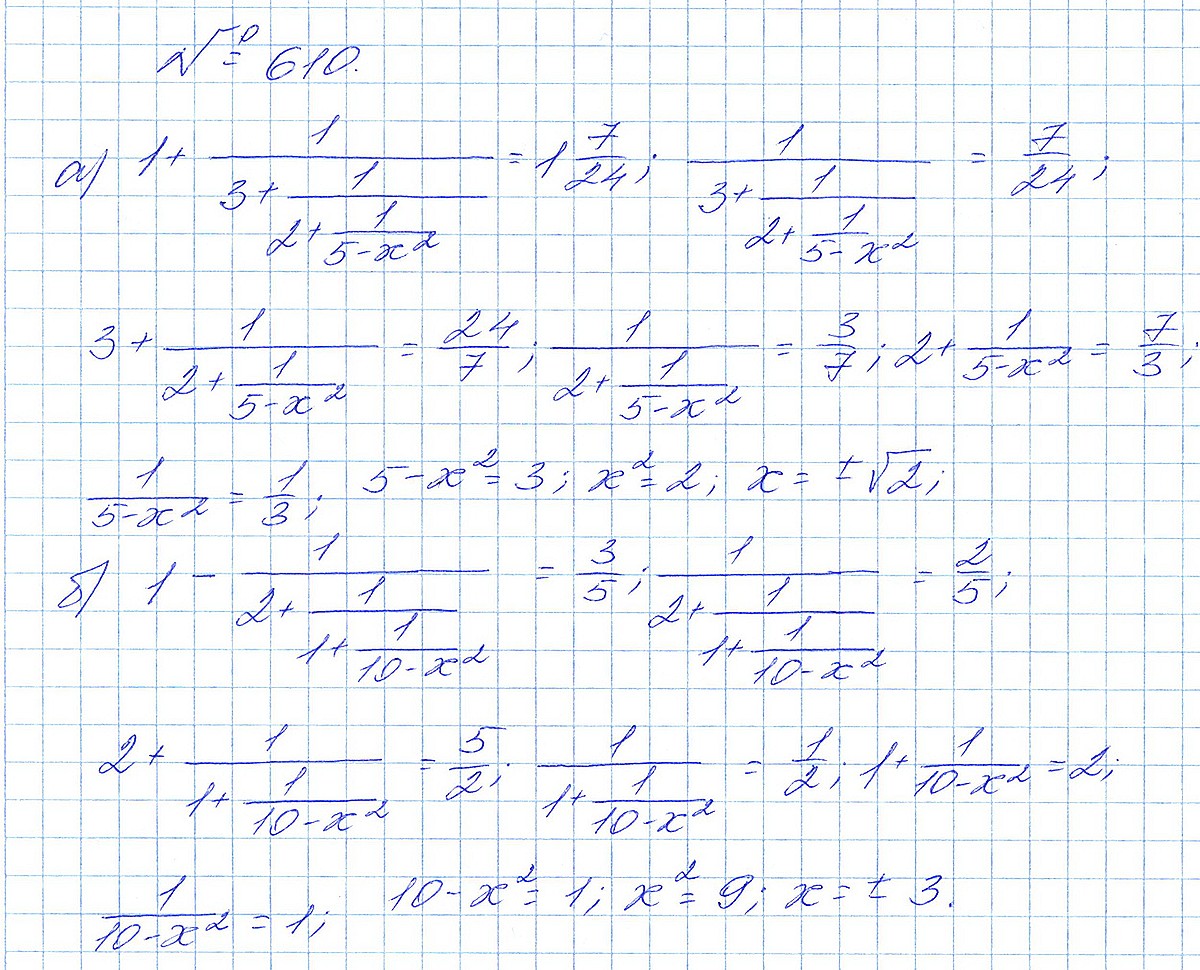 № 610.
а) 1 + 1/(3 + 1/(2 + 1/(5 - x²))) = 1 7/24; 1/(3 + 1/(2 + 1/(5 - x²))) = 7/24;
3 + 1/(2 + 1/(5 - x²)) = 24/7; 1/(2 + 1/(5 - x²)) = 3/7; 2 + 1/(5 - x²) = 7/3;
1/(5 - x²) = 1/3; 5 - x² = 3; x² = 2; x = ±√2;
б) 1 - 1/(2 + 1/(1 + 1/(10 - x²))) = 3/5; 1/(2 + 1/(1 + 1/(10 - x²))) = 2/5;
2 + 1/(1 + 1/(10 - x²)) = 5/2; 1/(1 + 1/(10 - x²)) = 1/2; 1 + 1/(10 - x²) = 2;
1/(10 - x²) = 1; 10 - x² = 1; x² = 9; x = ± 3.